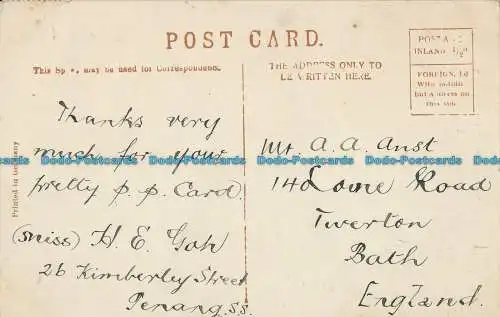 POST CARD.
This Sp e, may be used for Correspondence.
THE ADDRESS ONLY TO
BE WRITTEN HERE.
POSTA E
INLAND ½ᵈ
FOREIGN, 1d
Thanks very
much for your
pretty p. p. Card.
(Miss) H. E. Goh
26 Kimberley Street
Penang. S.S.
Mr. A. A. Anst
14 Lorne Road
Twerton
Bath
England.
Printed in Germany
Dodo-Postcards Dodo-Postcards Dodo-Postcards Dodo-Postcards
Dodo-Postcards Dodo-Postcards Dodo-Postcards Dodo-Postcards